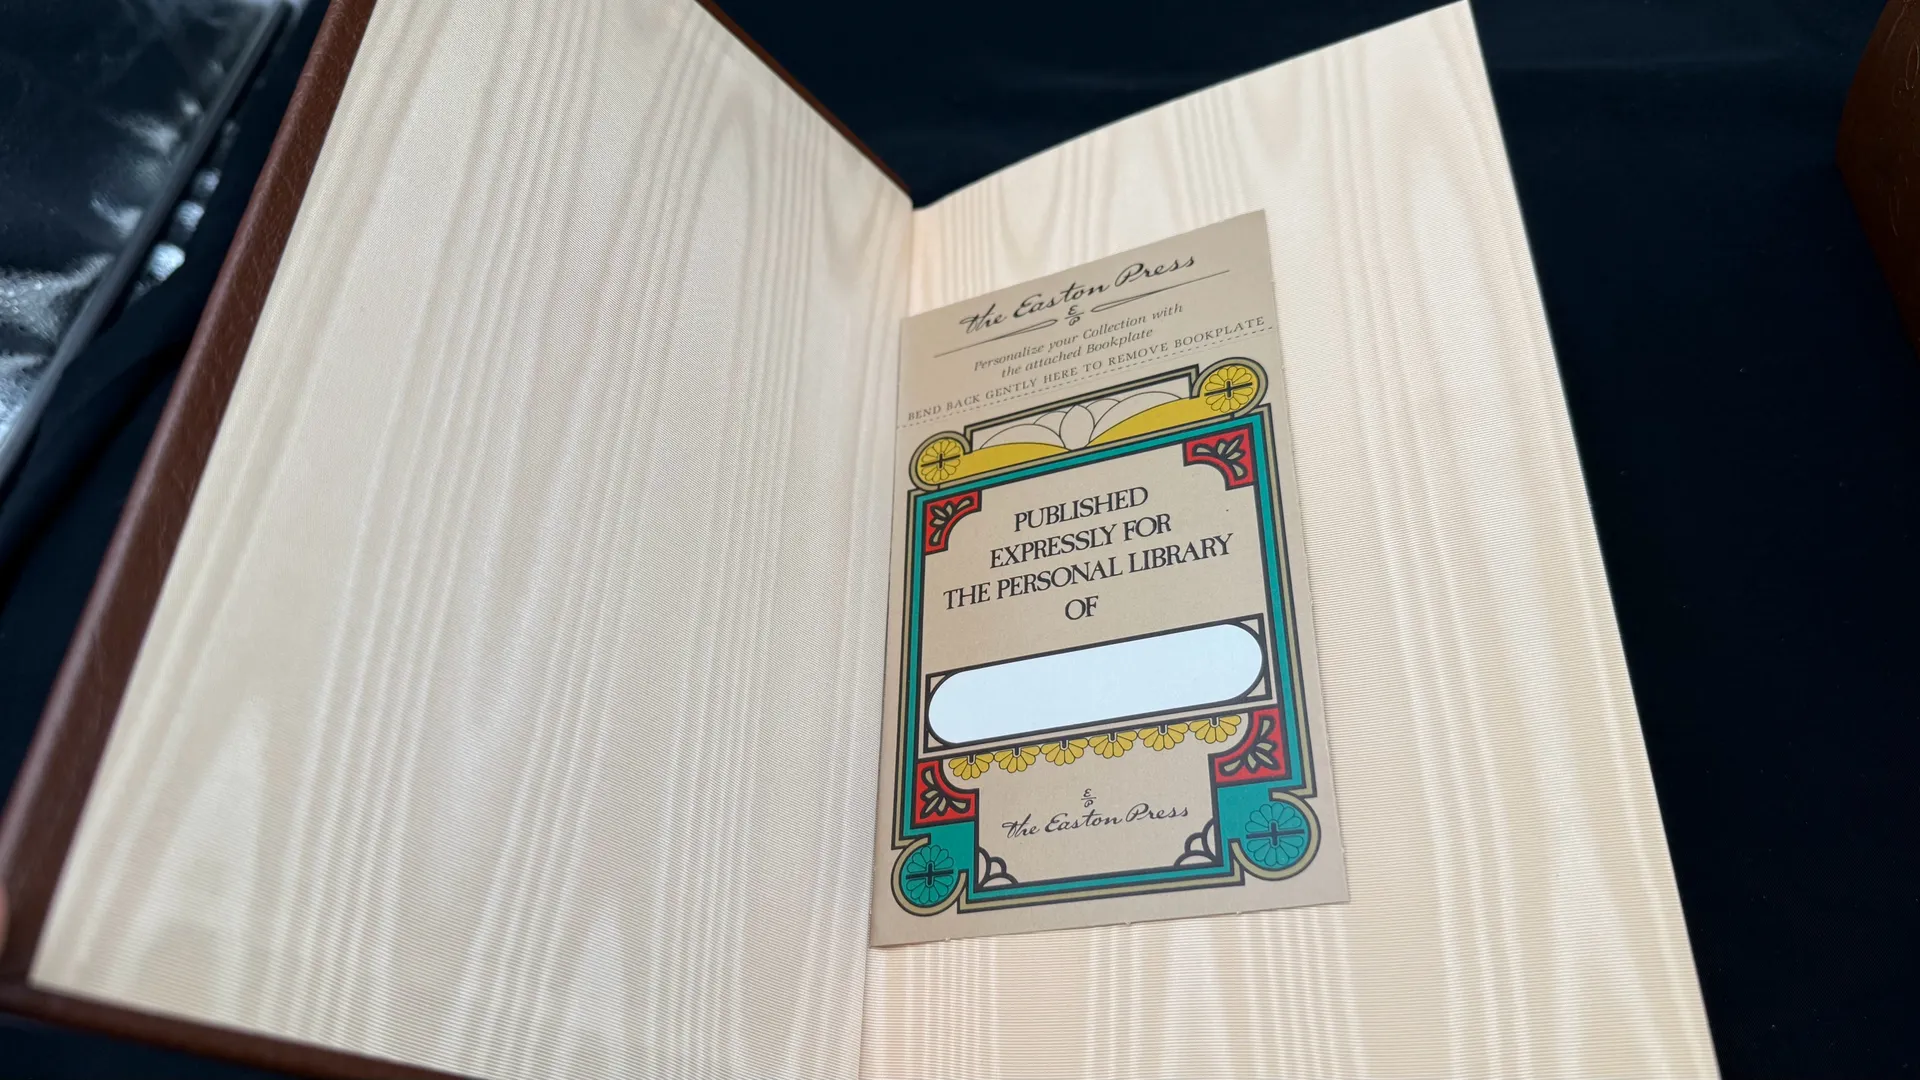 The Easton Press
EP
Personalize your Collection with
the attached Bookplate
BEND BACK GENTLY HERE TO REMOVE BOOKPLATE
PUBLISHED
EXPRESSLY FOR
THE PERSONAL LIBRARY
OF
EP
The Easton Press